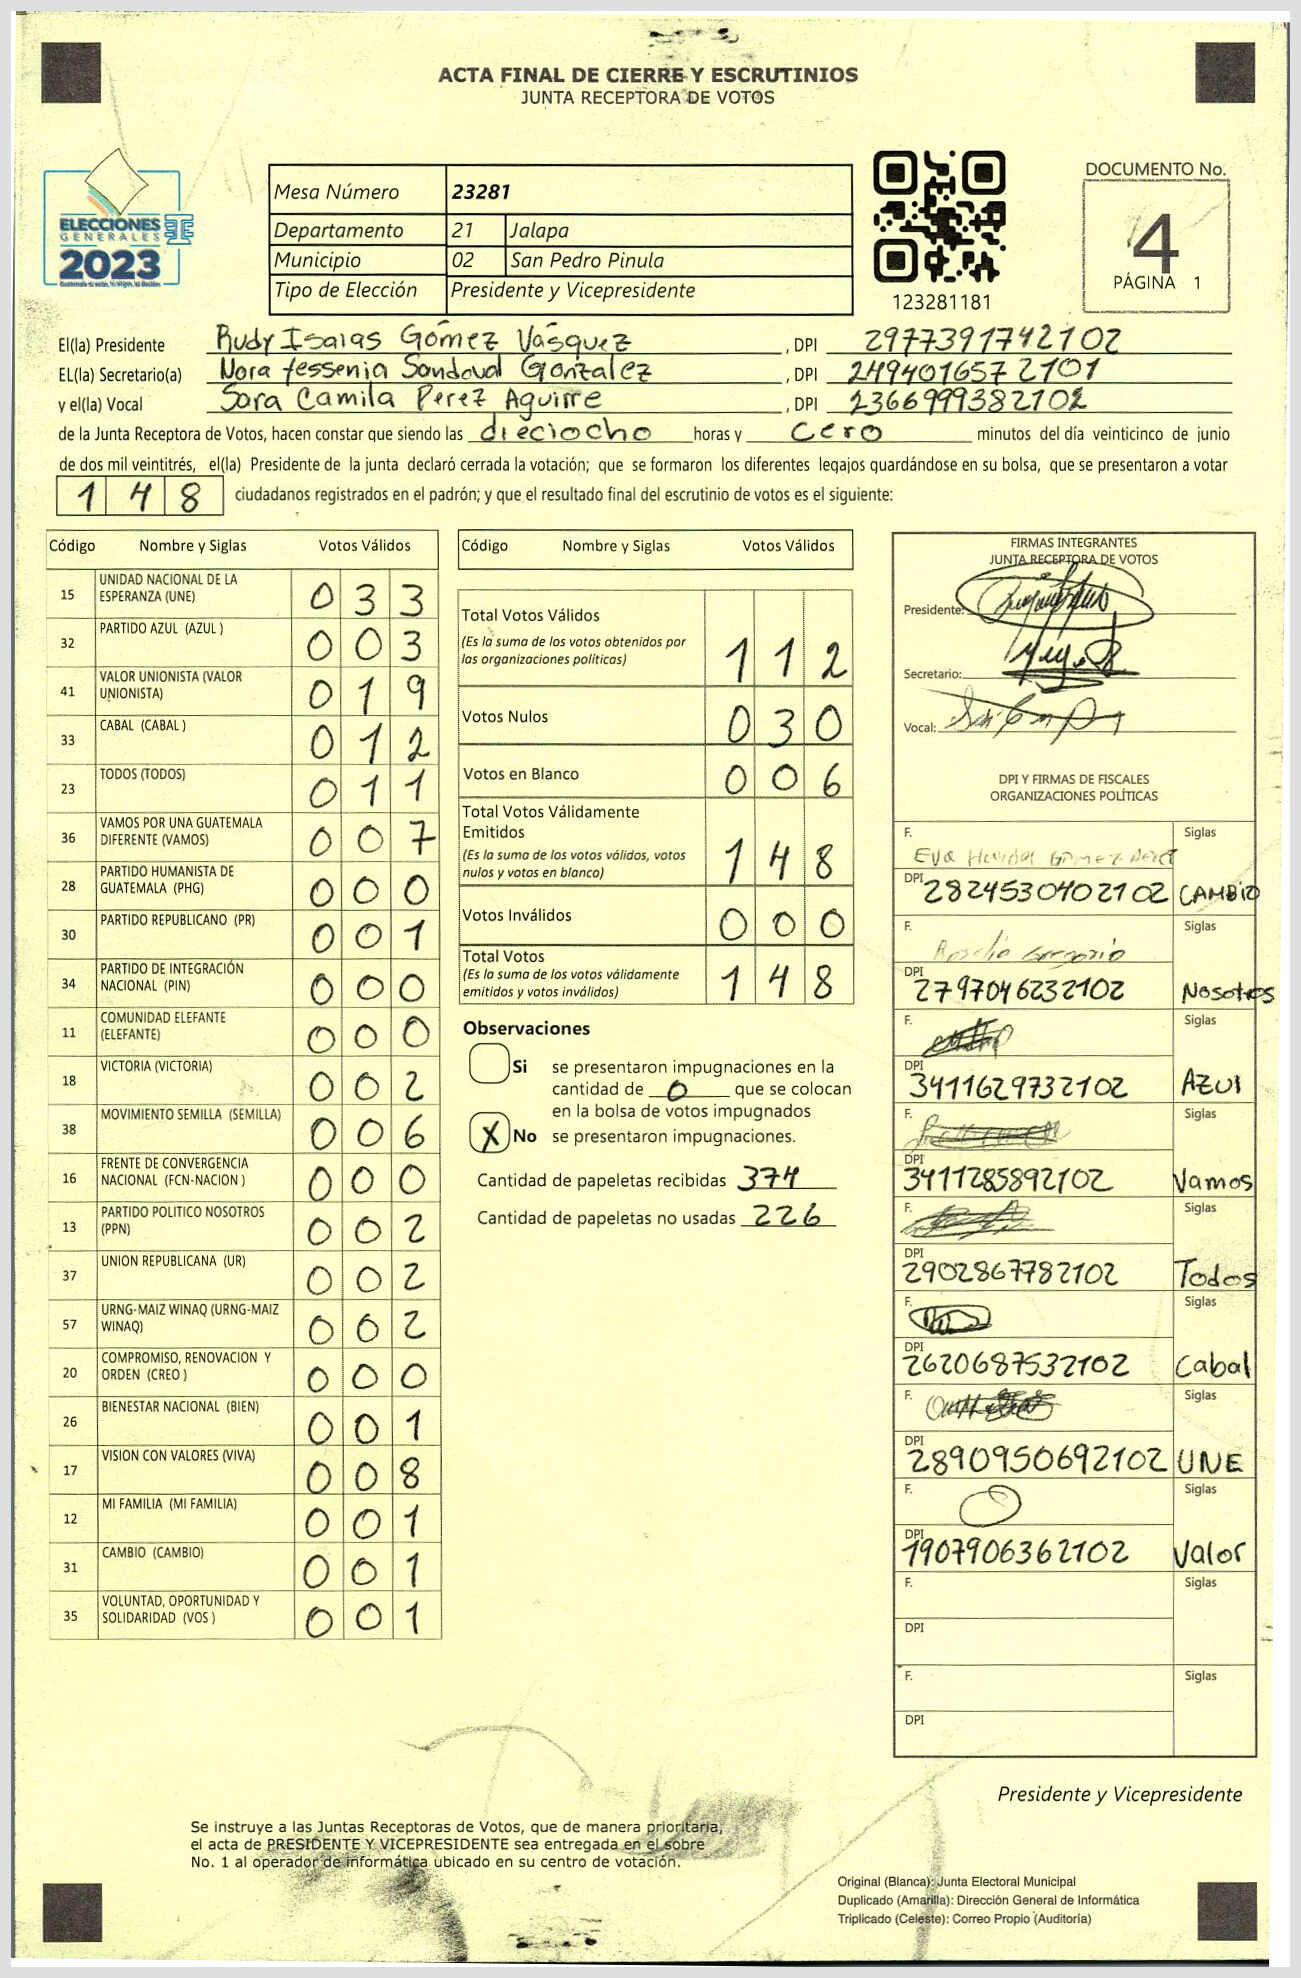 ACTA FINAL DE CIERRE Y ESCRUTINIOS
JUNTA RECEPTORA DE VOTOS
ELECCIONES
GENERALES
2023
Mesa Número 23281
Departamento 21 Jalapa
Municipio 02 San Pedro Pinula
Tipo de Elección Presidente y Vicepresidente
123281181
DOCUMENTO No.
4
PÁGINA 1
El(la) Presidente Rudy Isaias Gómez Vásquez , DPI 2977391742102
EL(la) Secretario(a) Nora Yessenia Sandoval Gonzalez , DPI 249401657 2101
y el(la) Vocal Sara Camila Perez Aguirre , DPI 2366999382102
de la Junta Receptora de Votos, hacen constar que siendo las dieciocho horas y cero minutos del día veinticinco de junio
de dos mil veintitrés, el(la) Presidente de la junta declaró cerrada la votación; que se formaron los diferentes legajos guardándose en su bolsa, que se presentaron a votar
148 ciudadanos registrados en el padrón; y que el resultado final del escrutinio de votos es el siguiente:
Código Nombre y Siglas Votos Válidos
15 UNIDAD NACIONAL DE LA ESPERANZA (UNE) 033
32 PARTIDO AZUL (AZUL ) 003
41 VALOR UNIONISTA (VALOR UNIONISTA) 019
33 CABAL (CABAL ) 012
23 TODOS (TODOS) 011
36 VAMOS POR UNA GUATEMALA DIFERENTE (VAMOS) 007
28 PARTIDO HUMANISTA DE GUATEMALA (PHG) 000
30 PARTIDO REPUBLICANO (PR) 001
34 PARTIDO DE INTEGRACIÓN NACIONAL (PIN) 000
11 COMUNIDAD ELEFANTE (ELEFANTE) 000
18 VICTORIA (VICTORIA) 002
38 MOVIMIENTO SEMILLA (SEMILLA) 006
16 FRENTE DE CONVERGENCIA NACIONAL (FCN-NACION ) 000
13 PARTIDO POLITICO NOSOTROS (PPN) 002
37 UNION REPUBLICANA (UR) 002
57 URNG-MAIZ WINAQ (URNG-MAIZ WINAQ) 002
20 COMPROMISO, RENOVACION Y ORDEN (CREO ) 000
26 BIENESTAR NACIONAL (BIEN) 001
17 VISION CON VALORES (VIVA) 008
12 MI FAMILIA (MI FAMILIA) 001
31 CAMBIO (CAMBIO) 001
35 VOLUNTAD, OPORTUNIDAD Y SOLIDARIDAD (VOS ) 001
Código Nombre y Siglas Votos Válidos
Total Votos Válidos 112
(Es la suma de los votos obtenidos por
las organizaciones políticas)
Votos Nulos 030
Votos en Blanco 006
Total Votos Válidamente
Emitidos 148
(Es la suma de los votos válidos, votos
nulos y votos en blanco)
Votos Inválidos 000
Total Votos 148
(Es la suma de los votos válidamente
emitidos y votos inválidos)
Observaciones
Si se presentaron impugnaciones en la
cantidad de 0 que se colocan
en la bolsa de votos impugnados
X No se presentaron impugnaciones.
Cantidad de papeletas recibidas 374
Cantidad de papeletas no usadas 226
FIRMAS INTEGRANTES
JUNTA RECEPTORA DE VOTOS
Presidente:
Secretario:
Vocal:
DPI Y FIRMAS DE FISCALES
ORGANIZACIONES POLÍTICAS
F. Eva Gómez Siglas
DPI 2824530402102 CAMBIO
F. Rosalio Gregorio Siglas
DPI 2797046232102 Nosotros
F. Siglas
DPI 3411629732102 AZUl
F. Siglas
DPI 3411285892102 Vamos
F. Siglas
DPI 2902867782102 Todos
F. Siglas
DPI 2620687532102 Cabal
F. Siglas
DPI 2890950692102 UNE
F. Siglas
DPI 1907906362102 Valor
F. Siglas
DPI
F. Siglas
DPI
Presidente y Vicepresidente
Se instruye a las Juntas Receptoras de Votos, que de manera prioritaria,
el acta de PRESIDENTE Y VICEPRESIDENTE sea entregada en el sobre
No. 1 al operador de informática ubicado en su centro de votación.
Original (Blanca): Junta Electoral Municipal
Duplicado (Amarilla): Dirección General de Informática
Triplicado (Celeste): Correo Propio (Auditoría)